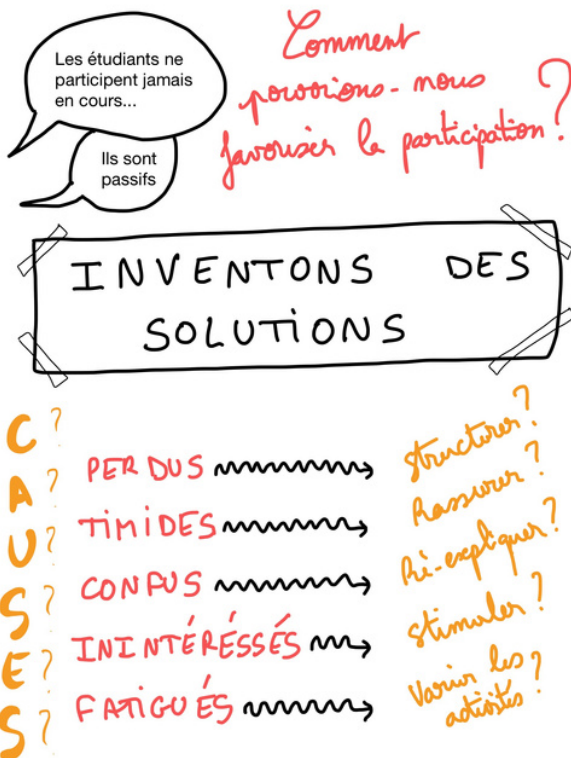 Les étudiants ne
participent jamais
en cours...
Ils sont
passifs
Comment
pouvoions-nous
favoriser la participation?
INVENTONS DES
SOLUTIONS
CAUSES
??????
PERDUS
structurer?
TIMIDES
Rassurer?
CONFUS
Ré-expliquer?
ININTÉRÉSSÉS
stimuler?
FATIGUÉS
Varier les
activités?